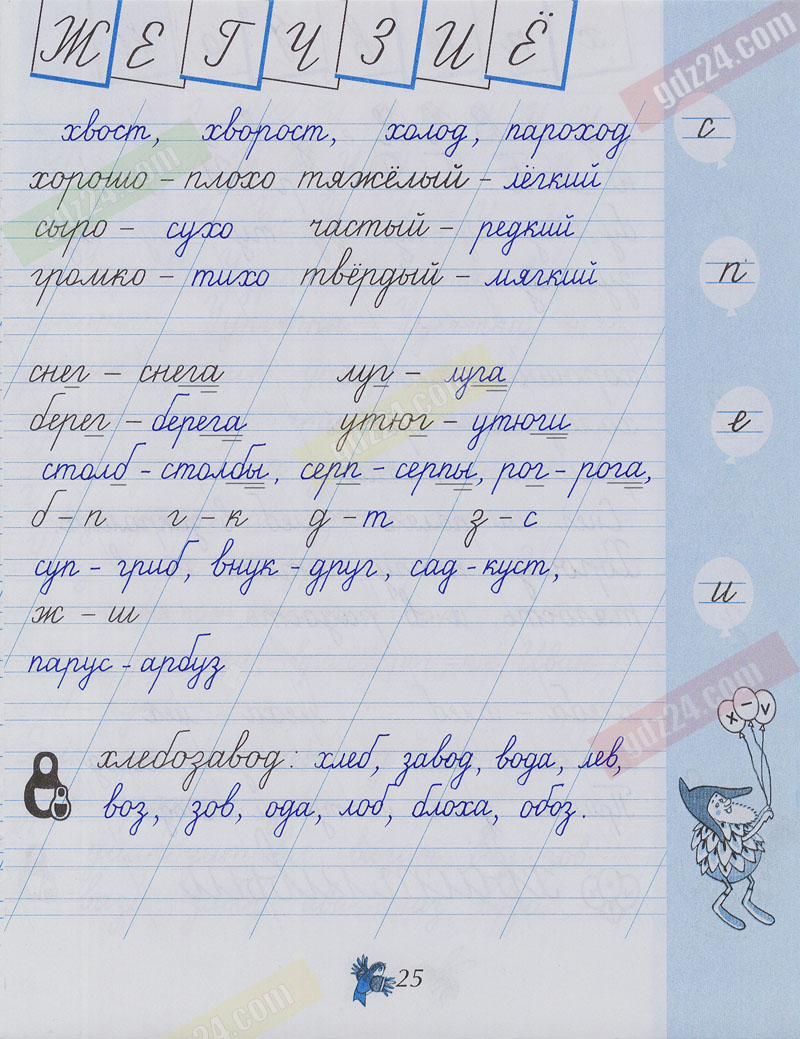 Ж Е Г Ч З И Ё
gdz24.com
хвост, хворост, холод, пароход
с
хорошо – плохо тяжёлый – лёгкий
gdz24.com
сыро – сухо частый – редкий
громко – тихо твёрдый – мягкий
п
снег – снега луг – луга
gdz24.com
берег – берега утюг – утюги
е
столб – столбы, серп – серпы, рог – рога,
б – п г – к д – т з – с
суп – гриб, внук – друг, сад – куст,
ж – ш
и
парус – арбуз
gdz24.com
х – v
хлебозавод: хлеб, завод, вода, лев,
воз, зов, ода, лоб, блоха, обоз.
25
gdz24.com